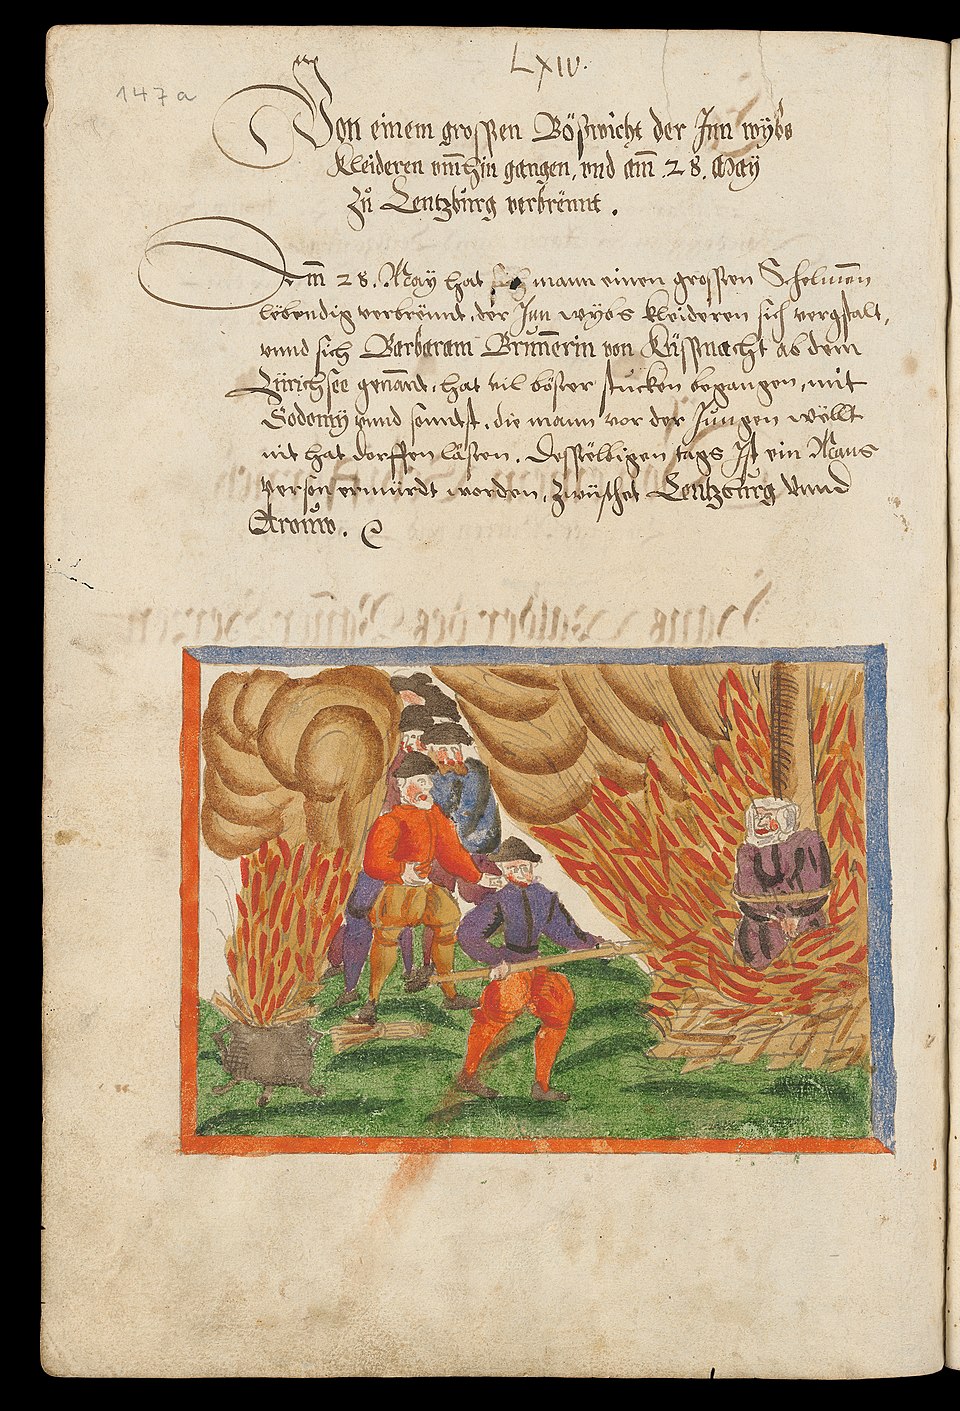 LXIV.
147a
Von einem grossen Bößwicht der Inn wybs
Kleideren vmhin gangen, vnd am .28. May
Zů Lentzburg verbrënnt.
Am 28. May hat mann einen grossen Schelmen
lëbendig verbrënnt, der Inn wybs kleideren sich vergstalt,
vnnd sich Barbaram Brunnerin von Küssnacht ab dem
Zürichsee genandt, hat vil böser stucken begangen, mit
Sodomy vnnd sonnst, die mann vor der Jungen wëllt
nit hat dorffen läsen. Dessëlbigen tags Ist ein Mans
person ermürdt worden, zwüschet Lentzburg Vnnd
Arouw.